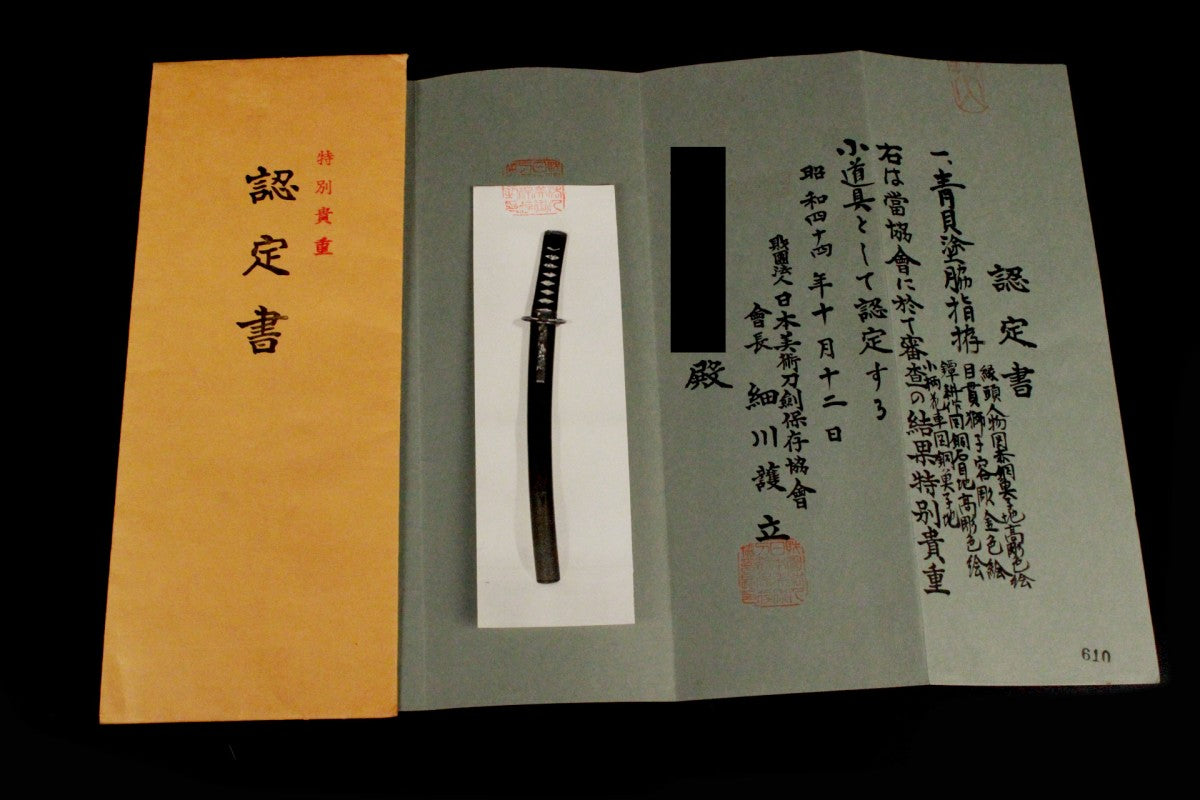 認定書
一、青貝塗脇指拵
縁頭人物図赤銅地高彫色絵
目貫獅子容彫金色絵
鐔耕作図銅石目地高彫色絵
小柄花車図銅
右は當協會に於て審査の結果特別貴重
小道具として認定する
昭和四十四年十月十二日
財團法人日本美術刀劍保存協會
會長 細川護立
殿
610
特別貴重
認定書